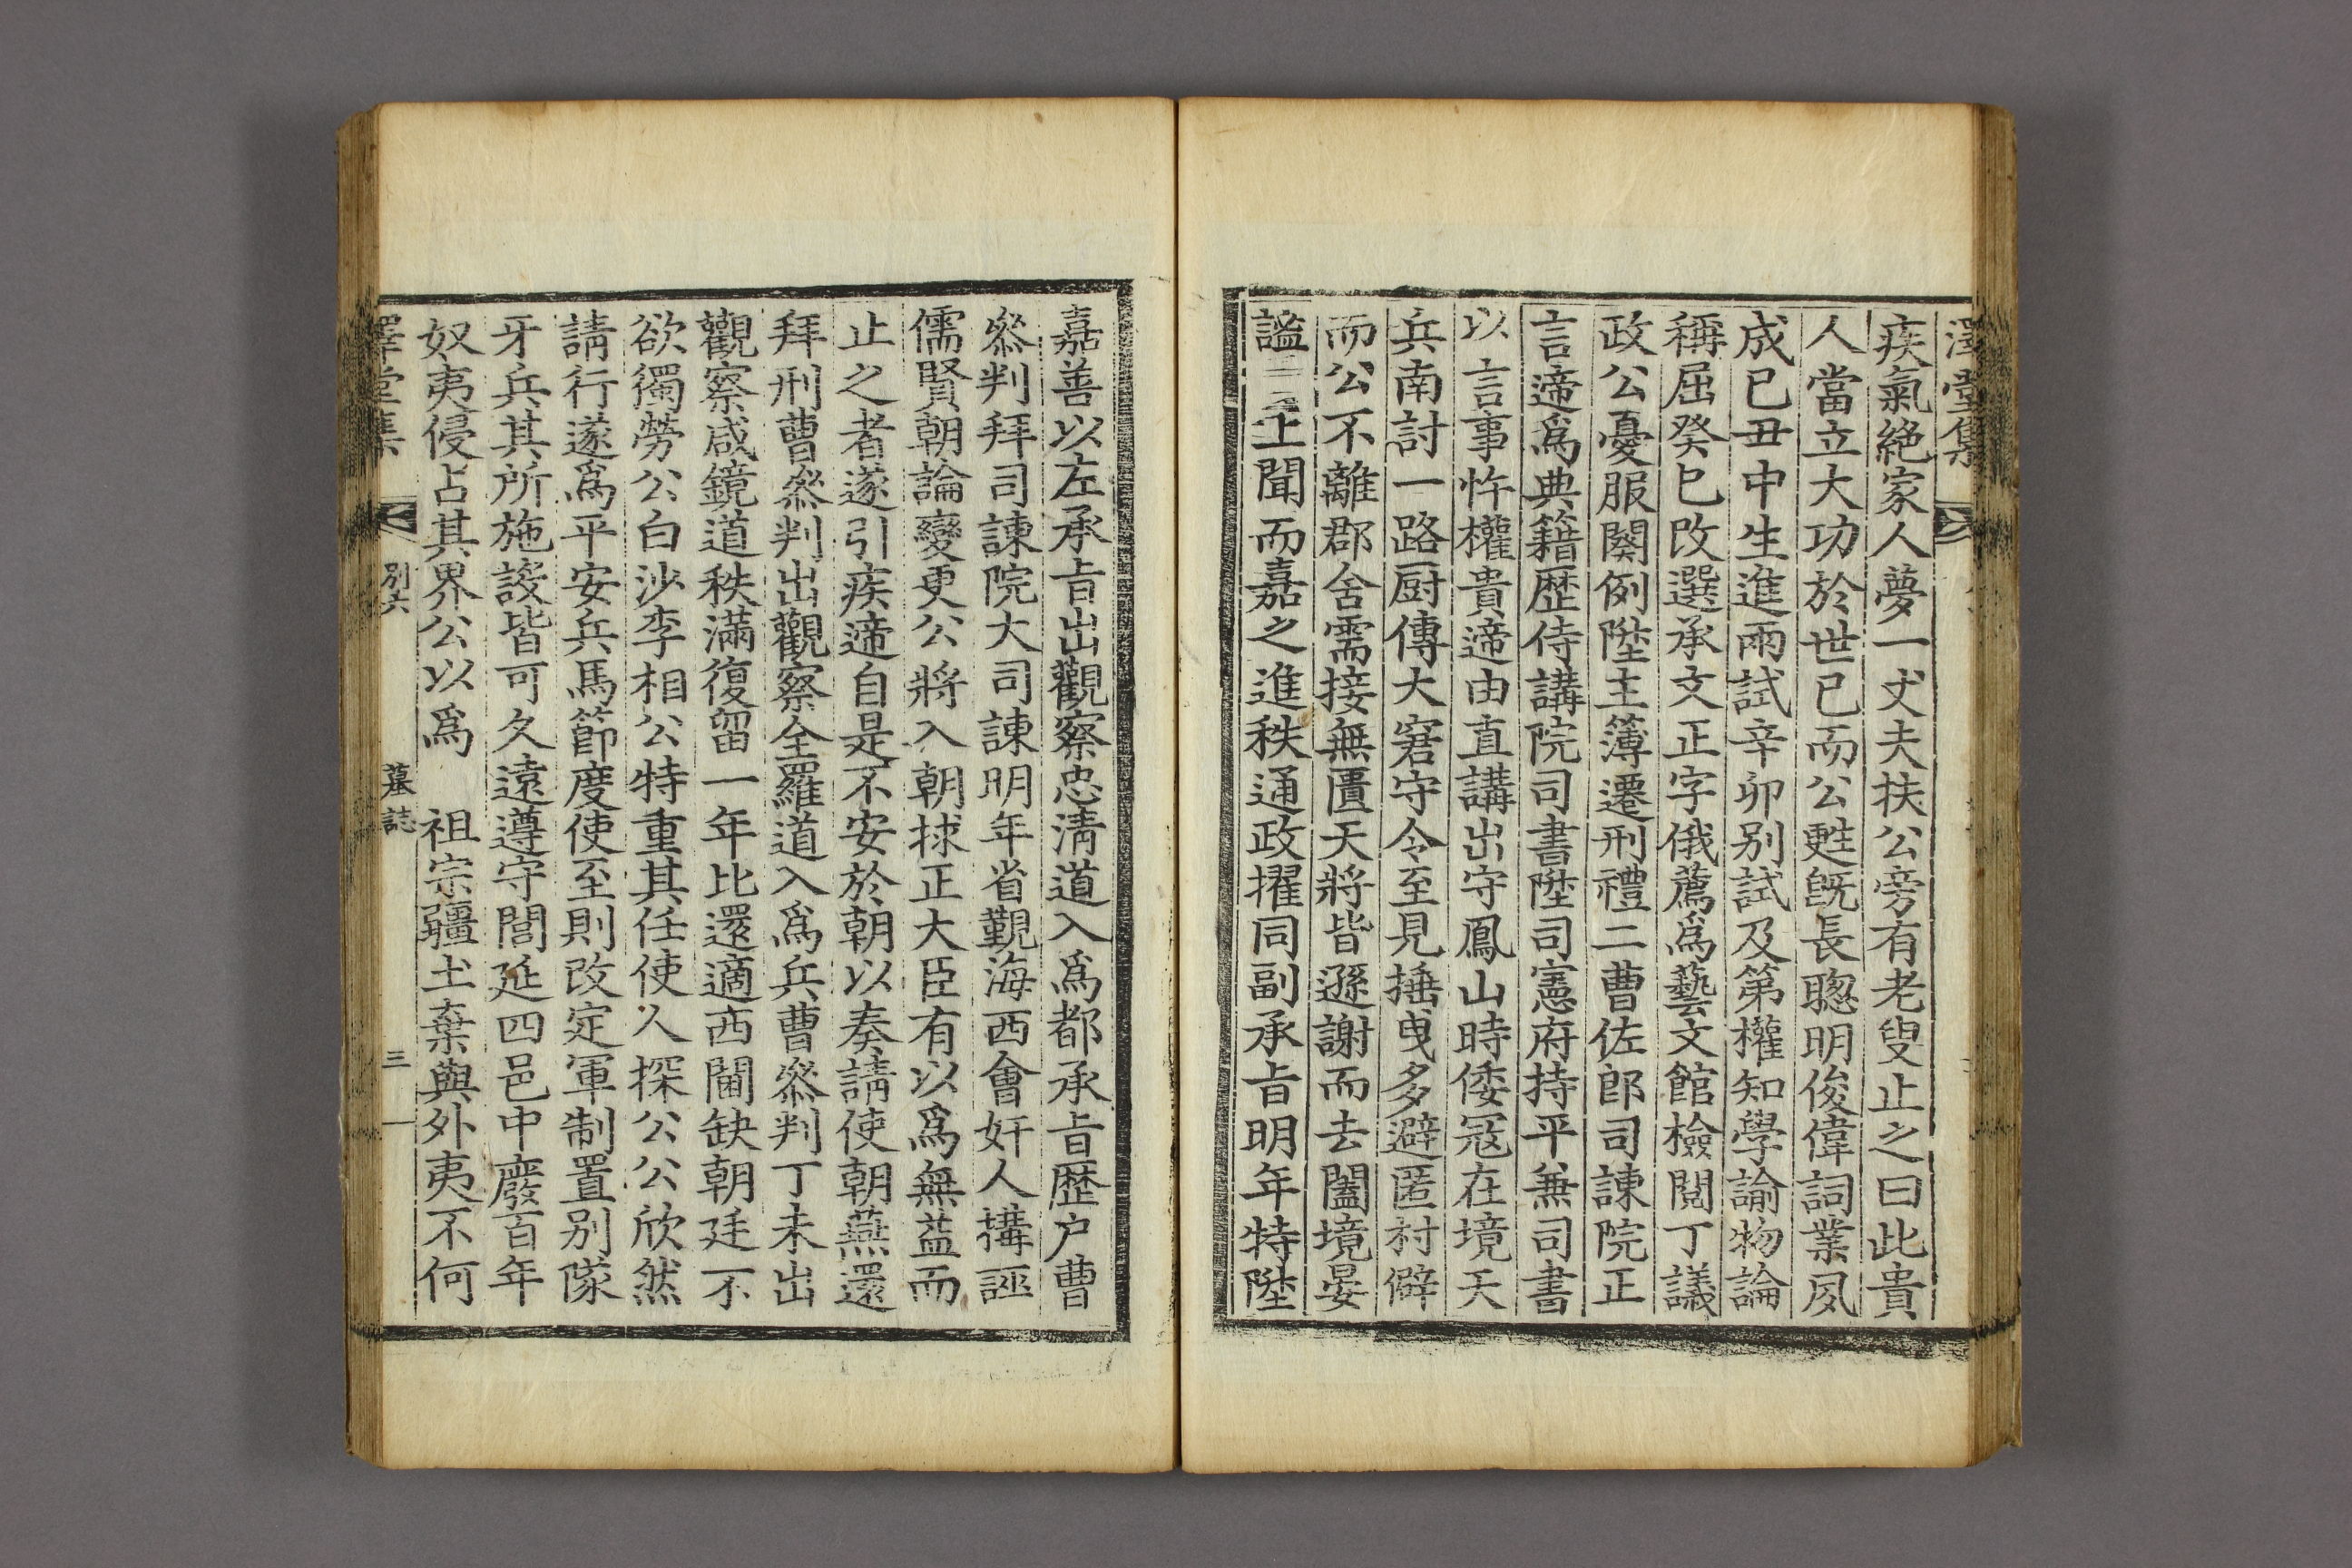 澤堂集
疾氣絶家人夢一丈夫扶公旁有老叟止之曰此貴
人當立大功於世已而公甦旣長聦明俊偉詞業夙
成已丑中生進兩試辛卯别試及第權知學諭物論
稱屈癸巳改選承文正字俄薦爲藝文館檢閱丁議
政公憂服闋例陞主簿遷刑禮二曹佐郎司諫院正
言遞爲典籍歷侍講院司書陞司憲府持平兼司書
以言事忤權貴遞由直講出守鳳山時倭冦在境天
兵南討一路厨傳大窘守令至見捶曳多避匿村僻
而公不離郡舍需接無匱天將皆遜謝而去闔境晏
謐 上聞而嘉之進秩通政擢同副承旨明年特陞
嘉善以左承旨出觀察忠淸道入爲都承旨歷户曹
叅判拜司諫院大司諫明年省覲海西會奸人搆誣
儒賢朝論變更公將入朝捄正大臣有以爲無益而
止之者遂引疾遞自是不安於朝以奏請使朝燕還
拜刑曹叅判出觀察全羅道入爲兵曹叅判丁未出
觀察咸鏡道秩滿復留一年比還適西閫缺朝廷不
欲獨勞公白沙李相公特重其任使人探公公欣然
請行遂爲平安兵馬節度使至則改定軍制置别隊
牙兵其所施設皆可久遠遵守閭延四邑中廢百年
奴夷侵占其界公以爲 祖宗疆土棄與外夷不何
澤堂集 别六 墓誌 三一